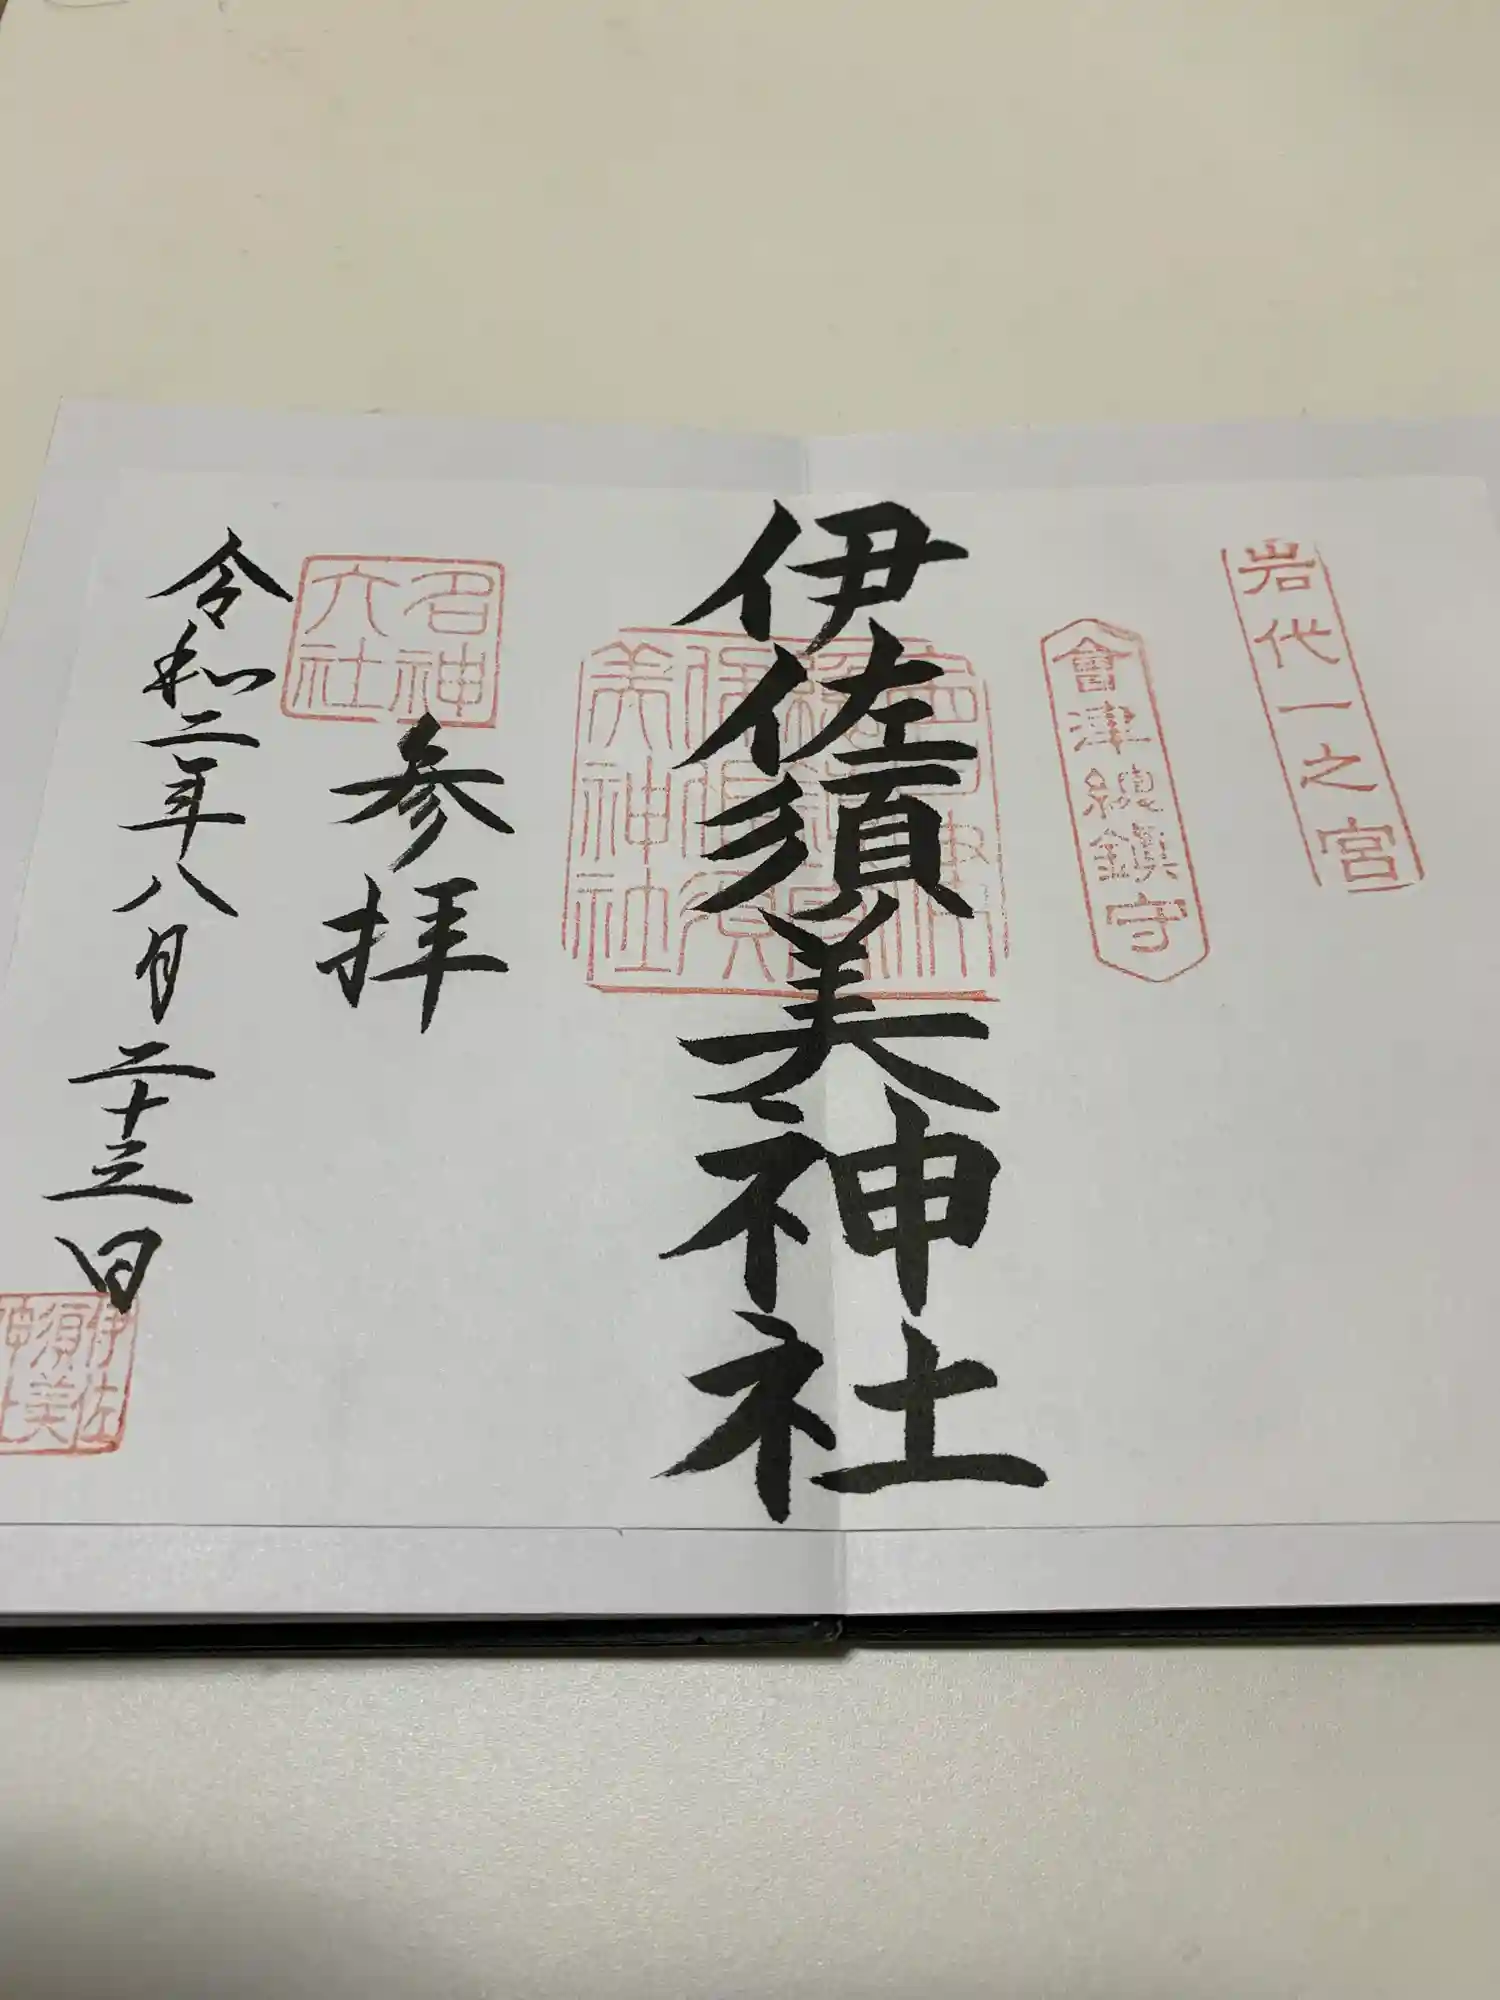 岩代一之宮
會津総鎮守
伊佐須美神社
名神
大社
参拝
令和二年八月二十三日
伊佐
須美
神社